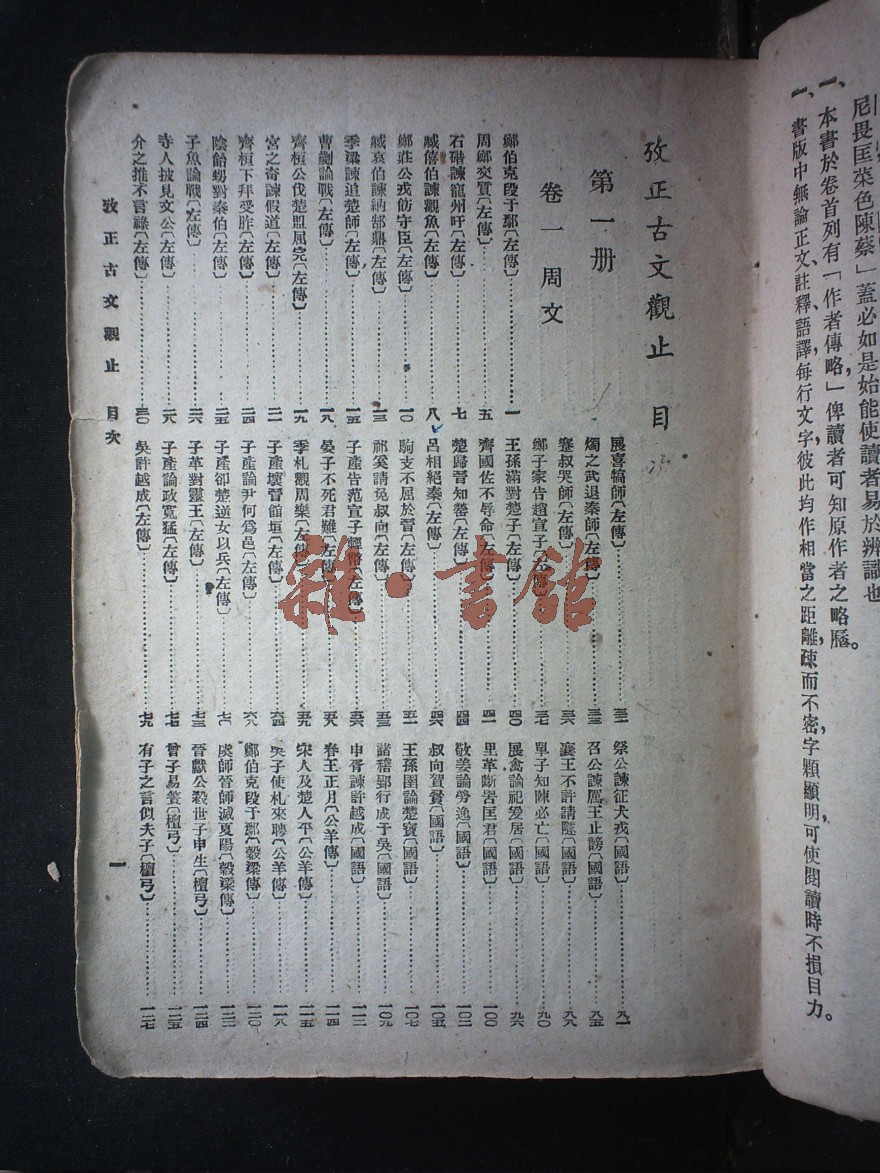 尼畏匡菜色陳蔡」蓋必如是始能使讀者易於辨識也
一、本書於卷首列有「作者傳略」俾讀者可知原作者之略歷。
一、書版中無論正文、註釋、語譯、每行文字、彼此均作相當之距離、疎而不密、字顆顯明、可使閱讀時不損目力。
攷正古文觀止 目次
第一册
卷一 周文
鄭伯克段于鄢〔左傳〕 一
周鄭交質〔左傳〕 五
石碏諫寵州吁〔左傳〕 七
臧僖伯諫觀魚〔左傳〕 八
鄭莊公戎飭守臣〔左傳〕 一〇
臧哀伯諫納郜鼎〔左傳〕 一三
季梁諫追楚師〔左傳〕 一五
曹劌論戰〔左傳〕 一八
齊桓公伐楚盟屈完〔左傳〕 一九
宮之奇諫假道〔左傳〕 二一
齊桓下拜受胙〔左傳〕 二四
陰飴甥對秦伯〔左傳〕 二五
子魚論戰〔左傳〕 二六
寺人披見文公〔左傳〕 二八
介之推不言祿〔左傳〕 三〇
展喜犒師〔左傳〕 三一
燭之武退秦師〔左傳〕 三三
蹇叔哭師〔左傳〕 三六
鄭子家告趙宣子〔左傳〕 三七
王孫滿對楚子〔左傳〕 四〇
齊國佐不辱命〔左傳〕 四一
楚歸晉知罃〔左傳〕 四四
呂相絕秦〔左傳〕 四六
駒支不屈於晉〔左傳〕 五一
祁奚請免叔向〔左傳〕 五三
子產告范宣子輕幣〔左傳〕 五六
晏子不死君難〔左傳〕 五八
季札觀周樂〔左傳〕 五九
子產壞晉館垣〔左傳〕 六四
子產論尹何爲邑〔左傳〕 六八
子產卻楚逆女以兵〔左傳〕 七一
子革對靈王〔左傳〕 七三
子產論政寬猛〔左傳〕 七七
吳許越成〔左傳〕 七九
祭公諫征犬戎〔國語〕 九一
召公諫厲王止謗〔國語〕 九五
襄王不許請隧〔國語〕 八八
單子知陳必亡〔國語〕 九〇
展禽論祀爰居〔國語〕 九六
里革斷罟匡君〔國語〕 一〇〇
敬姜論勞逸〔國語〕 一〇二
叔向賀貧〔國語〕 一〇五
王孫圉論楚寶〔國語〕 一〇七
諸稽郢行成于吳〔國語〕 一〇九
申胥諫許越成〔國語〕 一一二
春王正月〔公羊傳〕 一一四
宋人及楚人平〔公羊傳〕 一一五
吳子使札來聘〔公羊傳〕 一一八
鄭伯克段于鄢〔穀梁傳〕 一二〇
虞師晉師滅夏陽〔穀梁傳〕 一二二
晉獻公殺世子申生〔檀弓〕 一二四
曾子易簀〔檀弓〕 一二五
有子之言似夫子〔檀弓〕 一二七
攷正古文觀止 目次 一
雜·書館